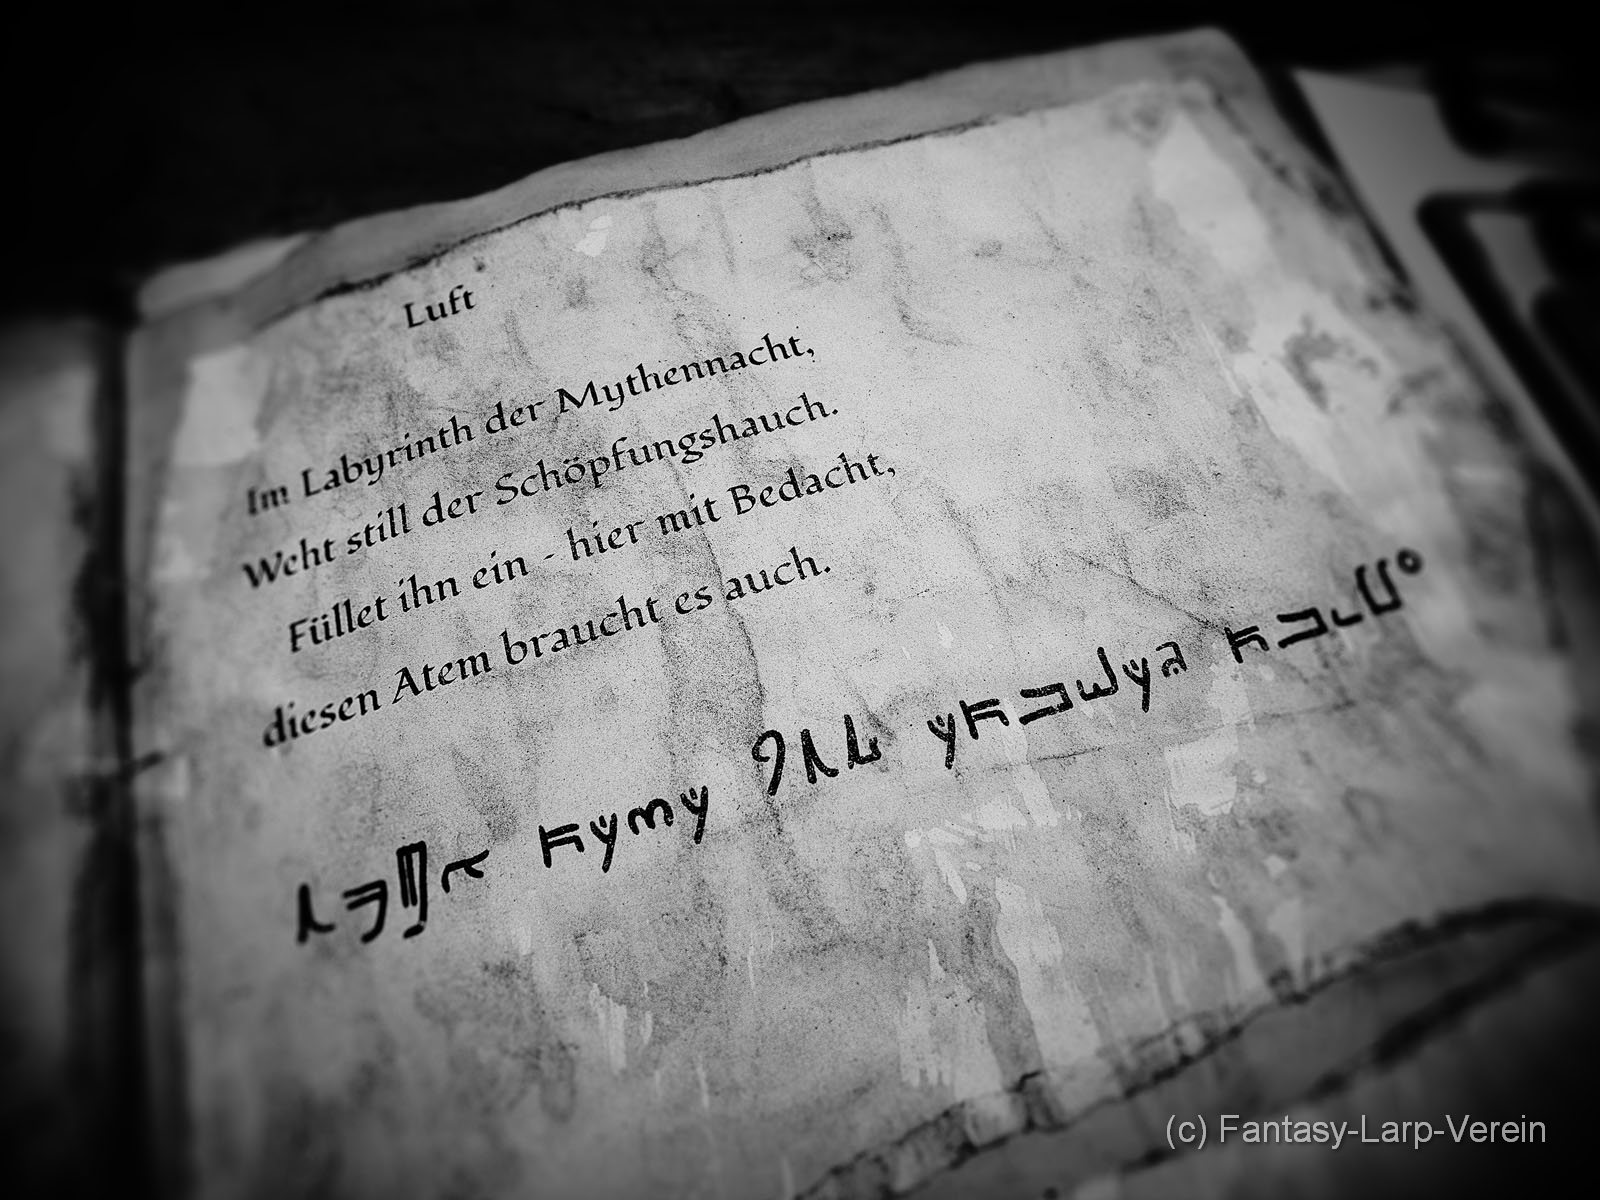 Luft
Im Labyrinth der Mythennacht,
Weht still der Schöpfungshauch.
Füllet ihn ein - hier mit Bedacht,
diesen Atem braucht es auch.
(c) Fantasy-Larp-Verein